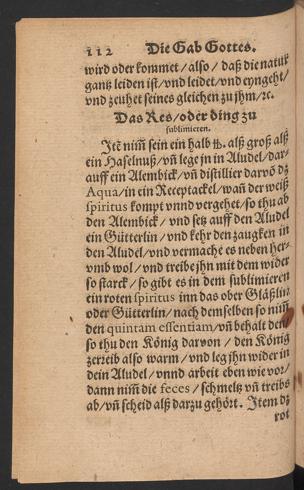 112 Die Gab Gottes.
wird oder kommet / also / daß die natur
gantz leiden ist / vnd leidet / vnd eyngeht /
vnd zeuhet seines gleichen zu jhm / ꝛc.
Das Res / oder ding zu
sublimieren.
Itē nim̄ sein ein halb ℔. alß groß alß
ein Haselnuß / vn̄ lege jn in Aludel / dar-
auff ein Alembick / vn̄ distillier darvō dz
Aqua / in ein Receptackel / wañ der weiß
spiritus kompt vnnd vergehet / so thu ab
den Alembick / vnd setz auff den Aludel
ein Gütterlin / vnd kehr den zaugken in
den Aludel / vnd vermache es neben her-
vmb wol / vnd treibe jhn mit dem wider
so starck / so gibt es in dem sublimieren
ein roten spiritus inn das ober Gläßlin
oder Gütterlin / nach demselben so nim̄
den quintam essentiam / vn̄ behalt den /
so thu den König darvon / den König
zerreib also warm / vnd leg jhn wider in
dein Aludel / vnnd arbeit eben wie vor /
dann nim̄ die feces / schmeltz vn̄ treibs
ab / vn̄ scheid alß darzu gehört. Item dz
rot